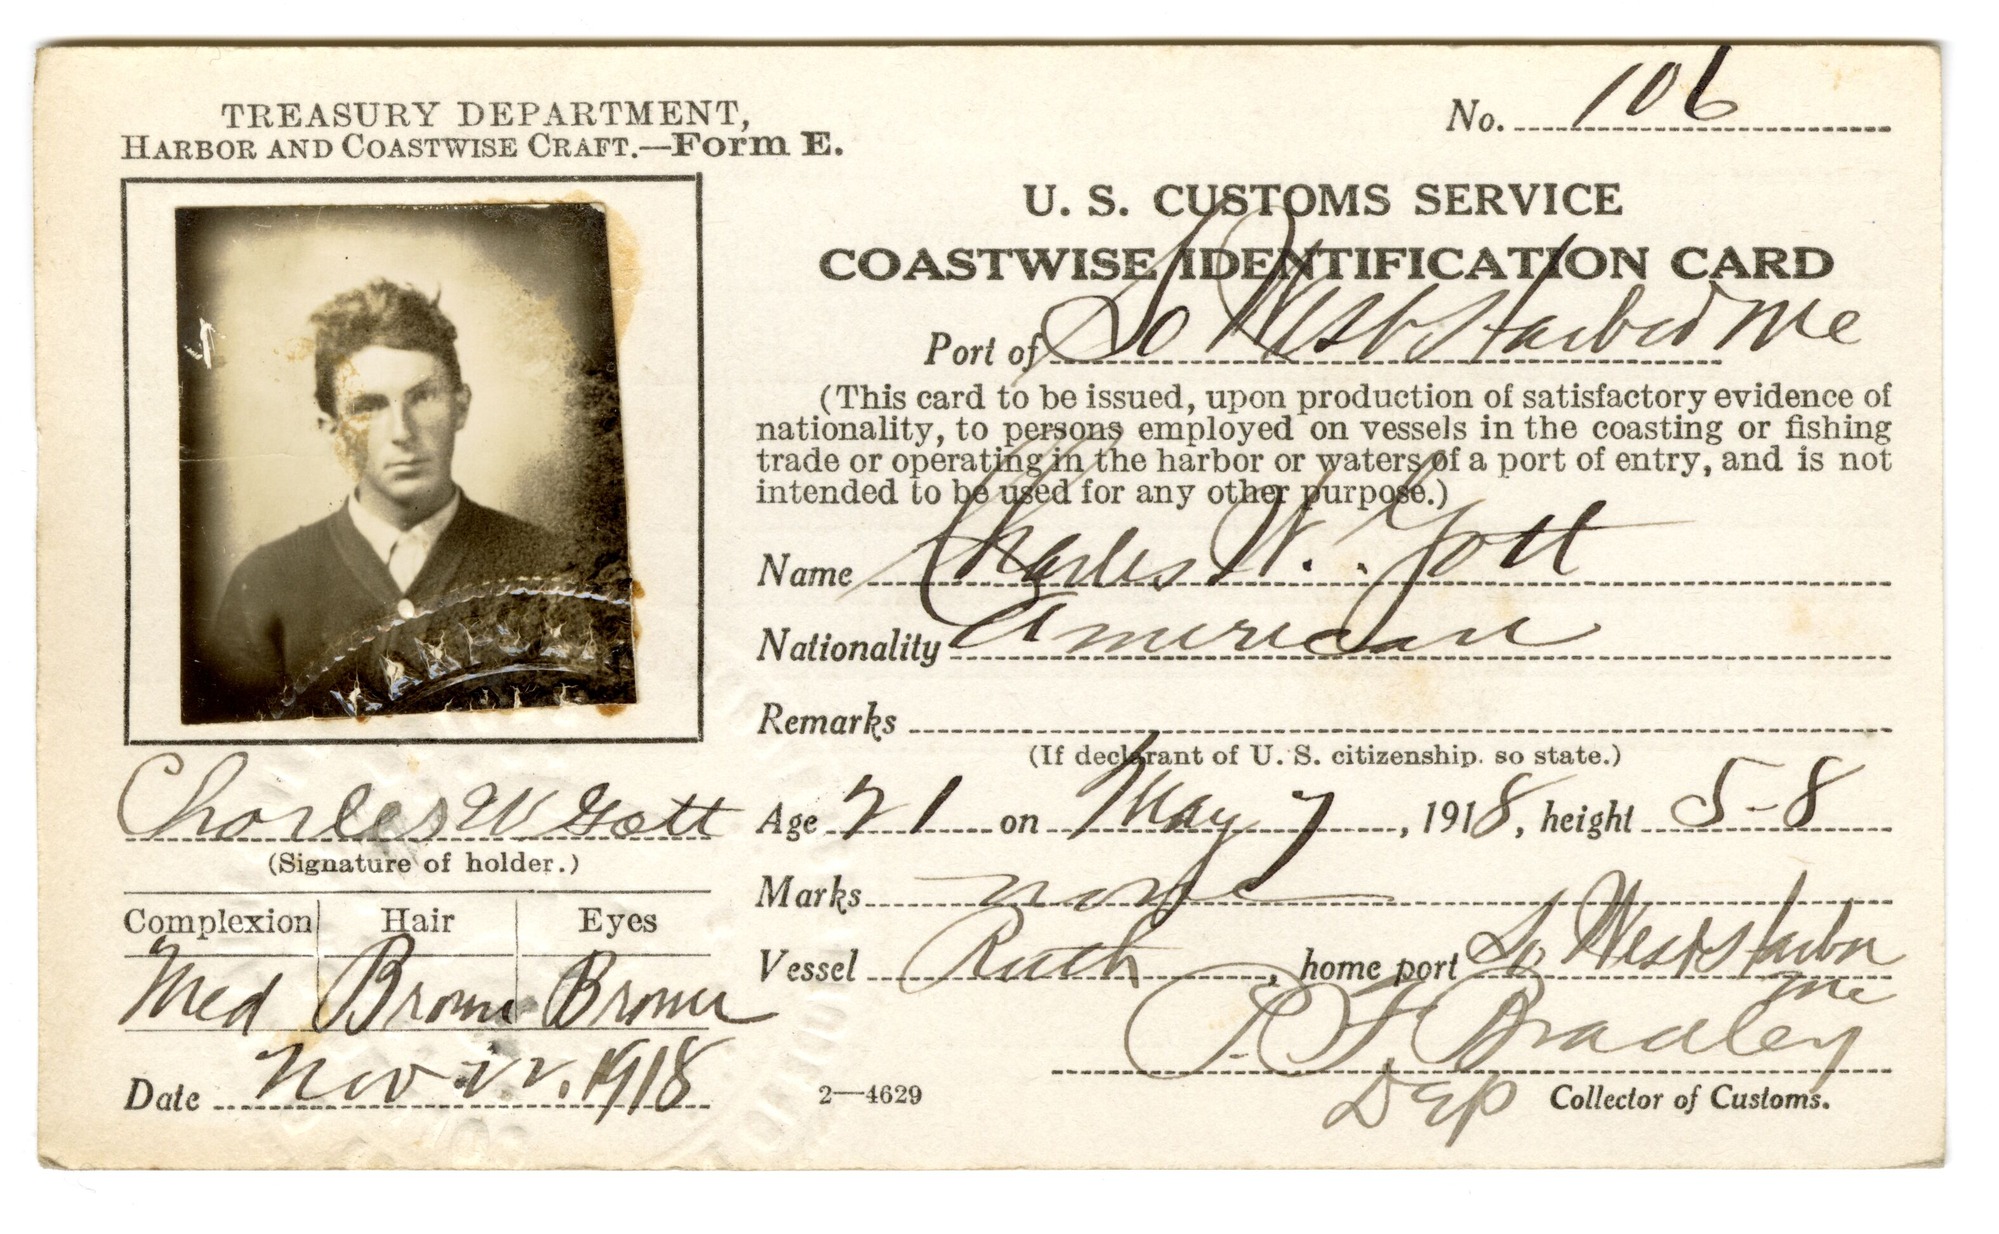 TREASURY DEPARTMENT,
HARBOR AND COASTWISE CRAFT.—Form E.
No. 106
U. S. CUSTOMS SERVICE
COASTWISE IDENTIFICATION CARD
Port of So West Harbor Me
(This card to be issued, upon production of satisfactory evidence of
nationality, to persons employed on vessels in the coasting or fishing
trade or operating in the harbor or waters of a port of entry, and is not
intended to be used for any other purpose.)
Name Charles W. Gott
Nationality American
Remarks
(If declarant of U. S. citizenship, so state.)
Age 21 on May 7, 1918, height 5-8
Marks none
Vessel Ruth, home port So West Harbor
Me
Bradley
Dep Collector of Customs.
Charles W Gott
(Signature of holder.)
Complexion Hair Eyes
Med Brown Brown
Date Nov 1918
2—4629